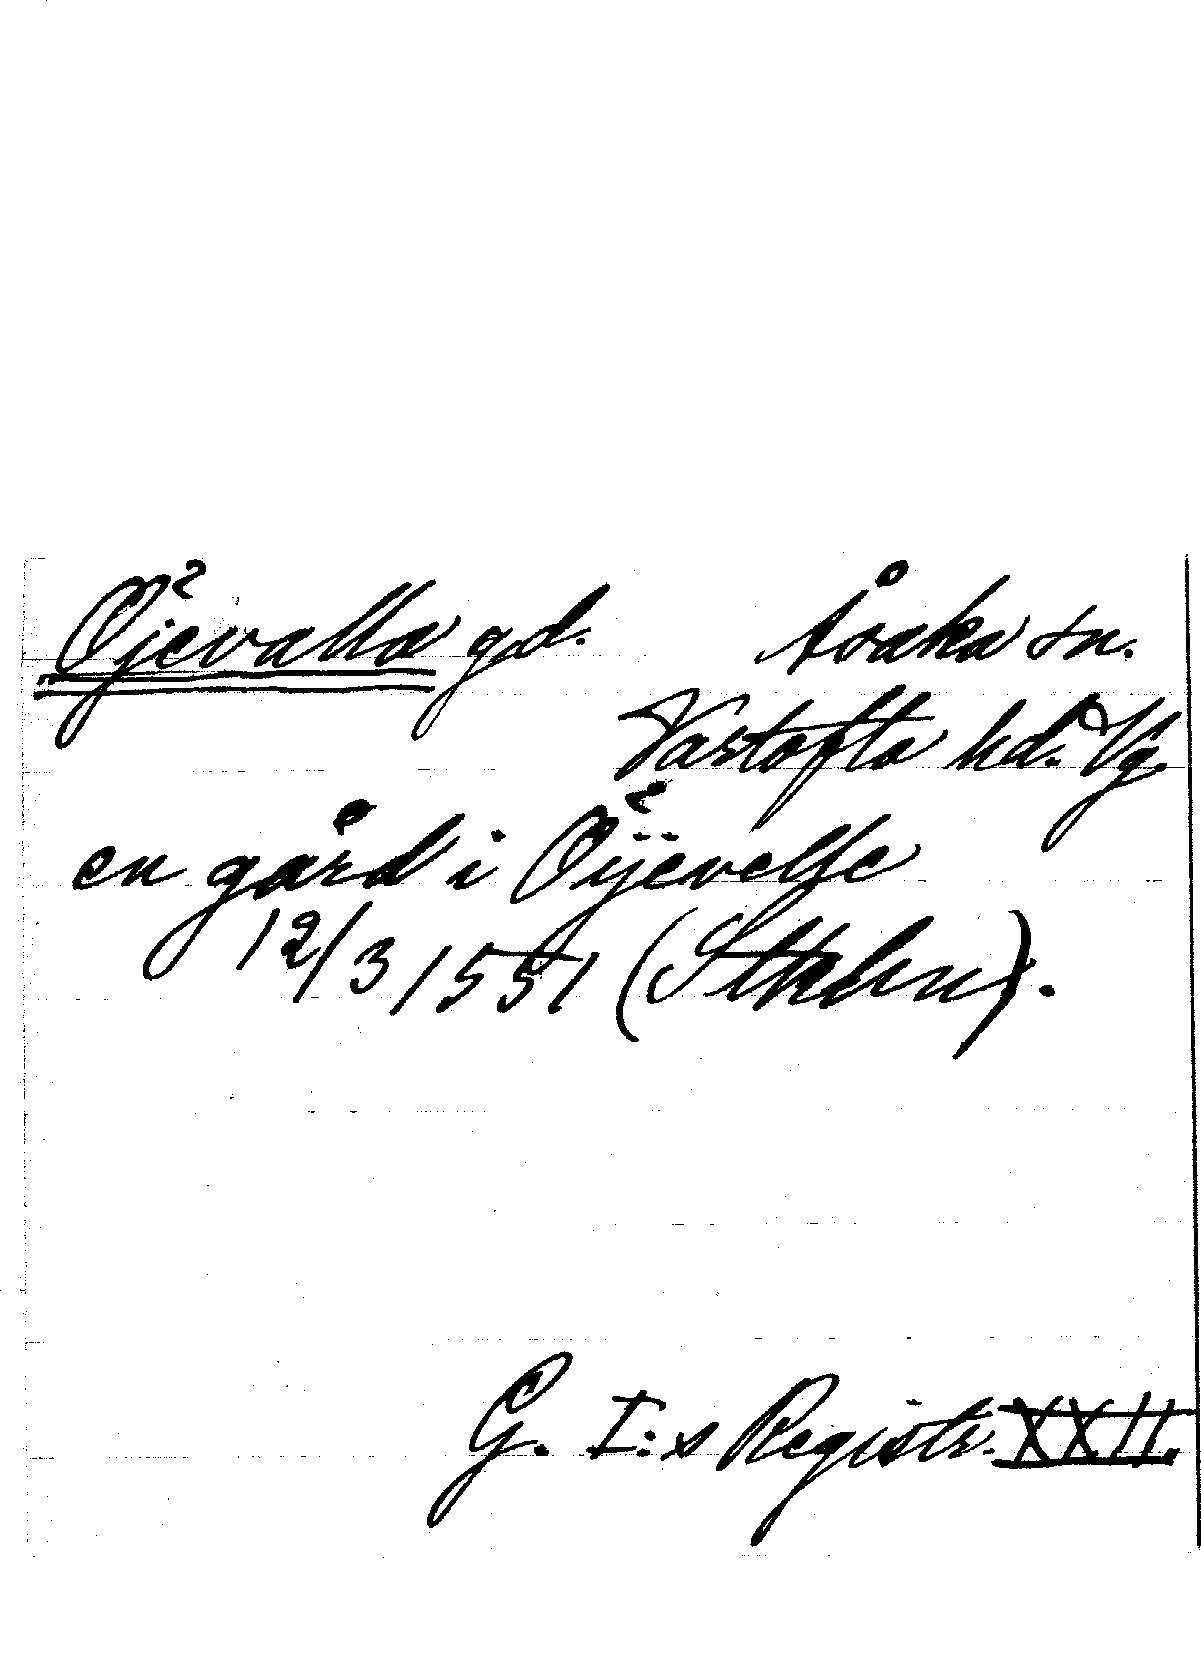 Öjevalla gd. Åsaka sn.
Vartofta hd. Vg.
en gård i Öÿevelle
12/3 1551 (Sthlm).
G. I:s Registr. XXII.